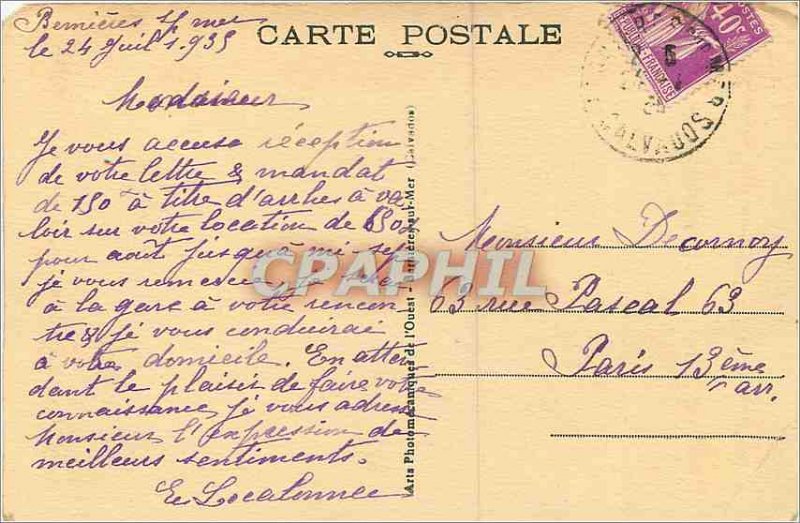 Bernières s/ mer
le 24 Juil 1935
CARTE POSTALE
Monsieur
Je vous accuse réception
de votre lettre & mandat
de 150 à titre d'arrhes à va
loir sur votre location de 650
pour août jusqu'à mi-sep
je vous remercie,
à la gare à votre rencon
tre & je vous conduirai
à votre domicile. En atten
dant le plaisir de faire votre
connaissance, je vous adresse
Monsieur l'expression de
meilleurs sentiments.
Arts Photomécaniques de l'Ouest - Bernières-sur-Mer (Calvados)
Monsieur Decornoy
63 rue Pascal 63
Paris 13ème
arr.
40c
POSTES
FRANÇAISE
MER
CALVADOS
CPAPHIL